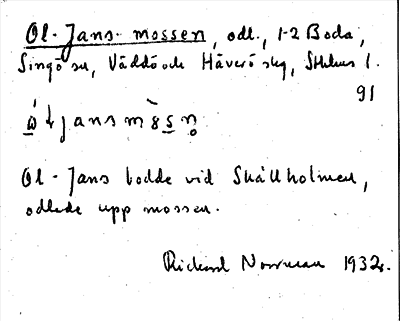 Ol-Jans-mossen, odl., 1-2 Boda,
Singö sn, Väddö och Häverö skg, Sthlms l.
91
Ol-Jans bodde vid Skällholmen,
odlade upp mossen.
Rickard Norrman 1932.